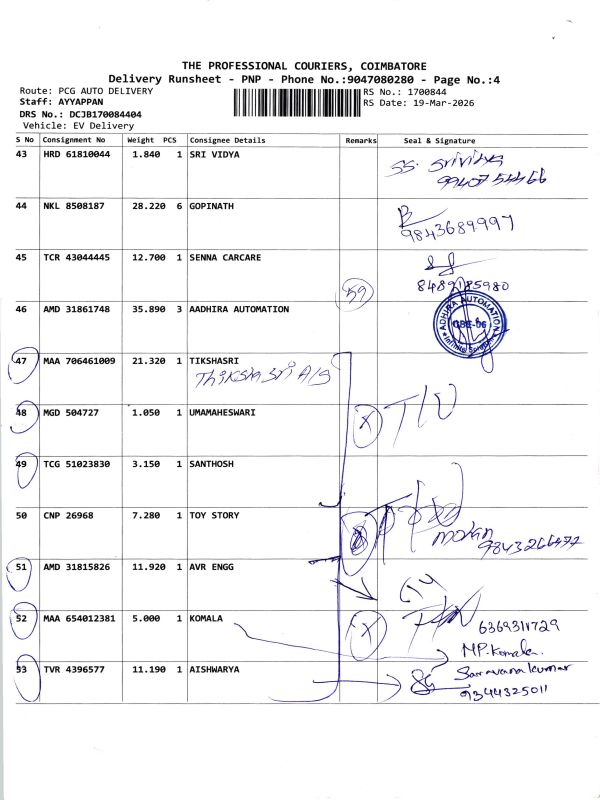 THE PROFESSIONAL COURIERS, COIMBATORE
Delivery Runsheet - PNP - Phone No.:9047080280 - Page No.:4
Route: PCG AUTO DELIVERY
RS No.: 1700844
Staff: AYYAPPAN
RS Date: 19-Mar-2026
DRS No.: DCJB170084404
Vehicle: EV Delivery
S No Consignment No Weight PCS Consignee Details Remarks Seal & Signature
43 HRD 61810044 1.840 1 SRI VIDYA
SS. Srividya
44 NKL 8508187 28.220 6 GOPINATH
9843689997
45 TCR 43044445 12.700 1 SENNA CARCARE
8489185980
59
46 AMD 31861748 35.890 3 AADHIRA AUTOMATION
ADHIRA AUTOMATION
47 MAA 706461009 21.320 1 TIKSHASRI
Thiksha Sri A/S
48 MGD 504727 1.050 1 UMAMAHESWARI
X
49 TCG 51023830 3.150 1 SANTHOSH
50 CNP 26968 7.280 1 TOY STORY
mohan
51 AMD 31815826 11.920 1 AVR ENGG
52 MAA 654012381 5.000 1 KOMALA
X
MP. Komala.
53 TVR 4396577 11.190 1 AISHWARYA
Saravanakumar
9344325011